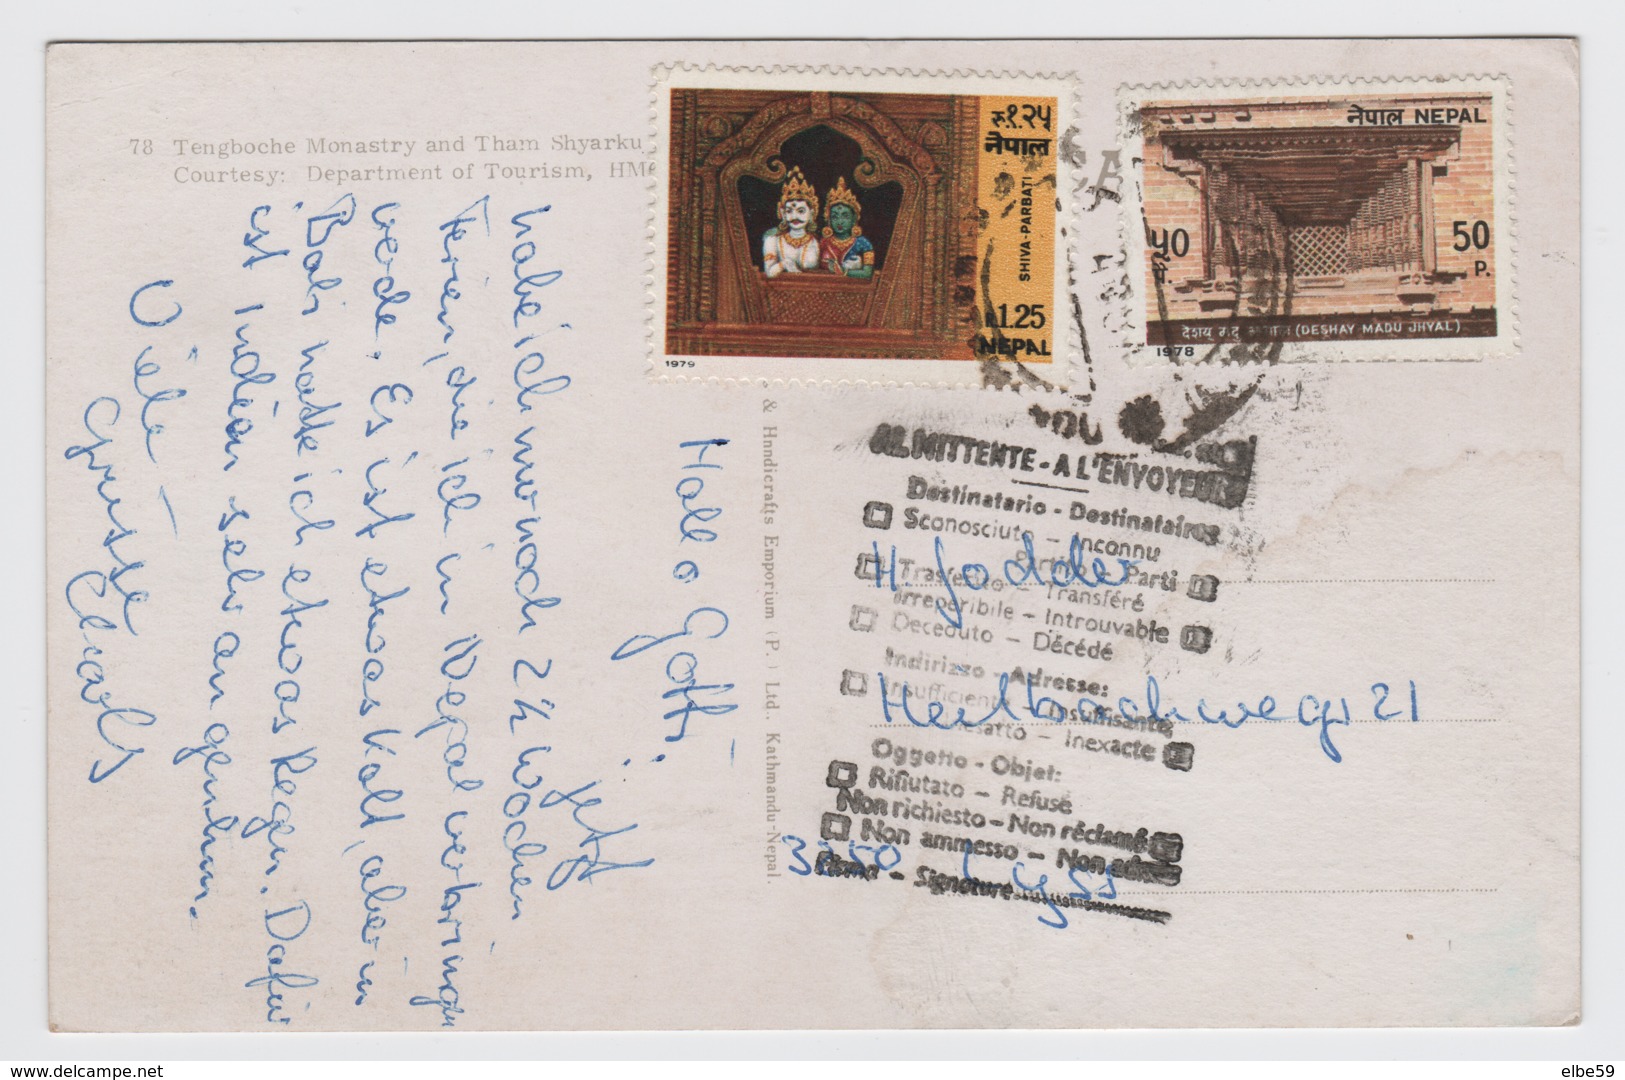 78 Tengboche Monastry and Tham Shyarku
Courtesy: Department of Tourism, HM
रु १.२५
नेपाल
SHIVA-PARBATI
1.25
NEPAL
1979
नेपाल NEPAL
५०
50
P.
(DESHAY MADU JHYAL)
1978
& Hnndicrafts Emporium (P.) Ltd., Kathmandu-Nepal.
Hallo Gotti! jetzt
habe ich nur noch 2½ Wochen
Ferien, die ich in Nepal verbringen
werde. Es ist etwas kalt, aber in
Bali hatte ich etwas Regen. Dafür
ist Indien sehr angenehm.
Viele
Grüsse
AL MITTENTE - A L'ENVOYEUR
Destinatario - Destinataire
Sconosciuto - Inconnu
Partito - Parti
Trasferito - Transféré
Irreperibile - Introuvable
Deceduto - Décédé
Indirizzo - Adresse:
Insufficiente - Insuffisante
Inesatto - Inexacte
Oggetto - Objet:
Rifiutato - Refusé
Non richiesto - Non réclamé
Non ammesso - Non admis
Firma - Signature
H Jodder
21
3250 Lyss
elbe59
delcampe.net